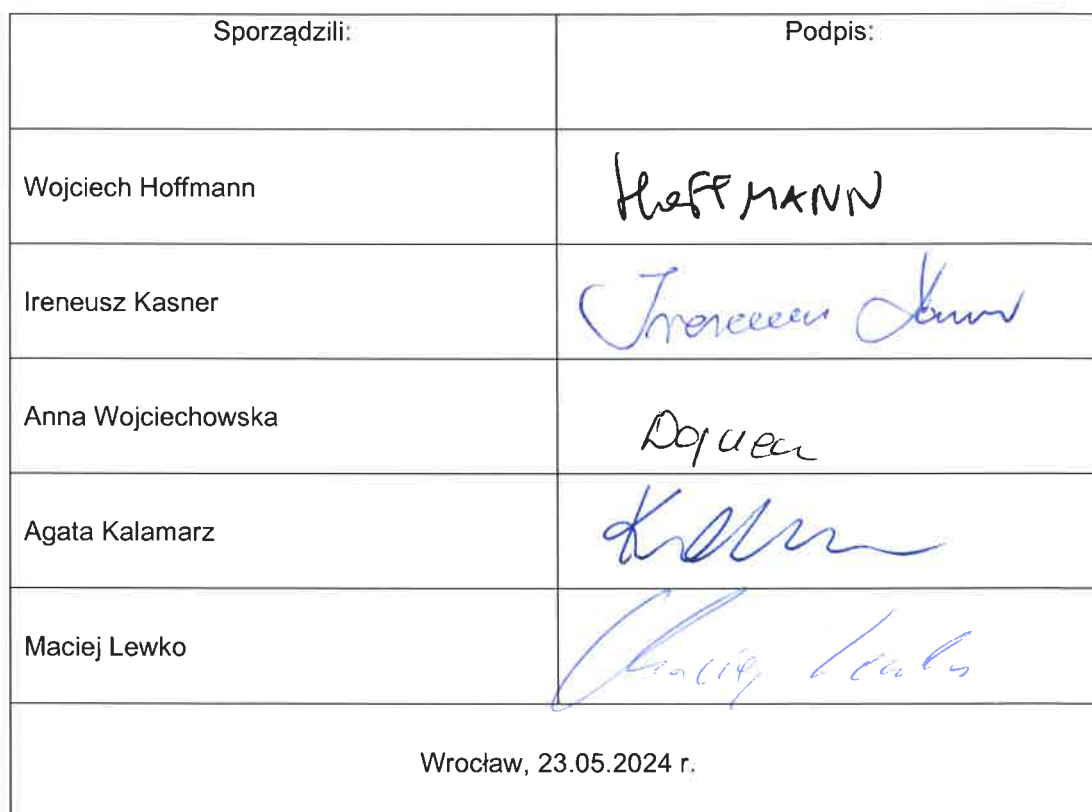 Sporządzili: Podpis:
Wojciech Hoffmann HoffMANN
Ireneusz Kasner
Anna Wojciechowska
Agata Kalamarz
Maciej Lewko Maciej Lewko
Wrocław, 23.05.2024 r.